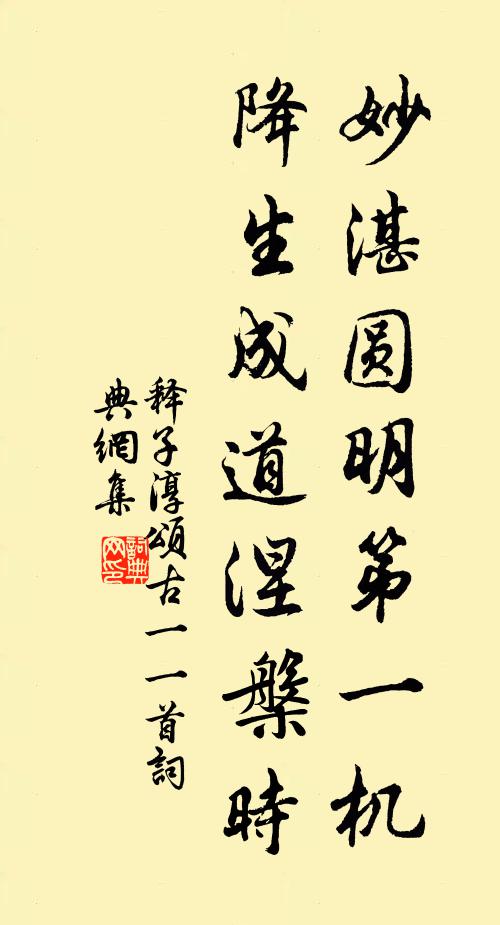 妙湛圆明第一机
降生成道涅槃時
释子淳頌古一一首詞
典網集
詞典网印